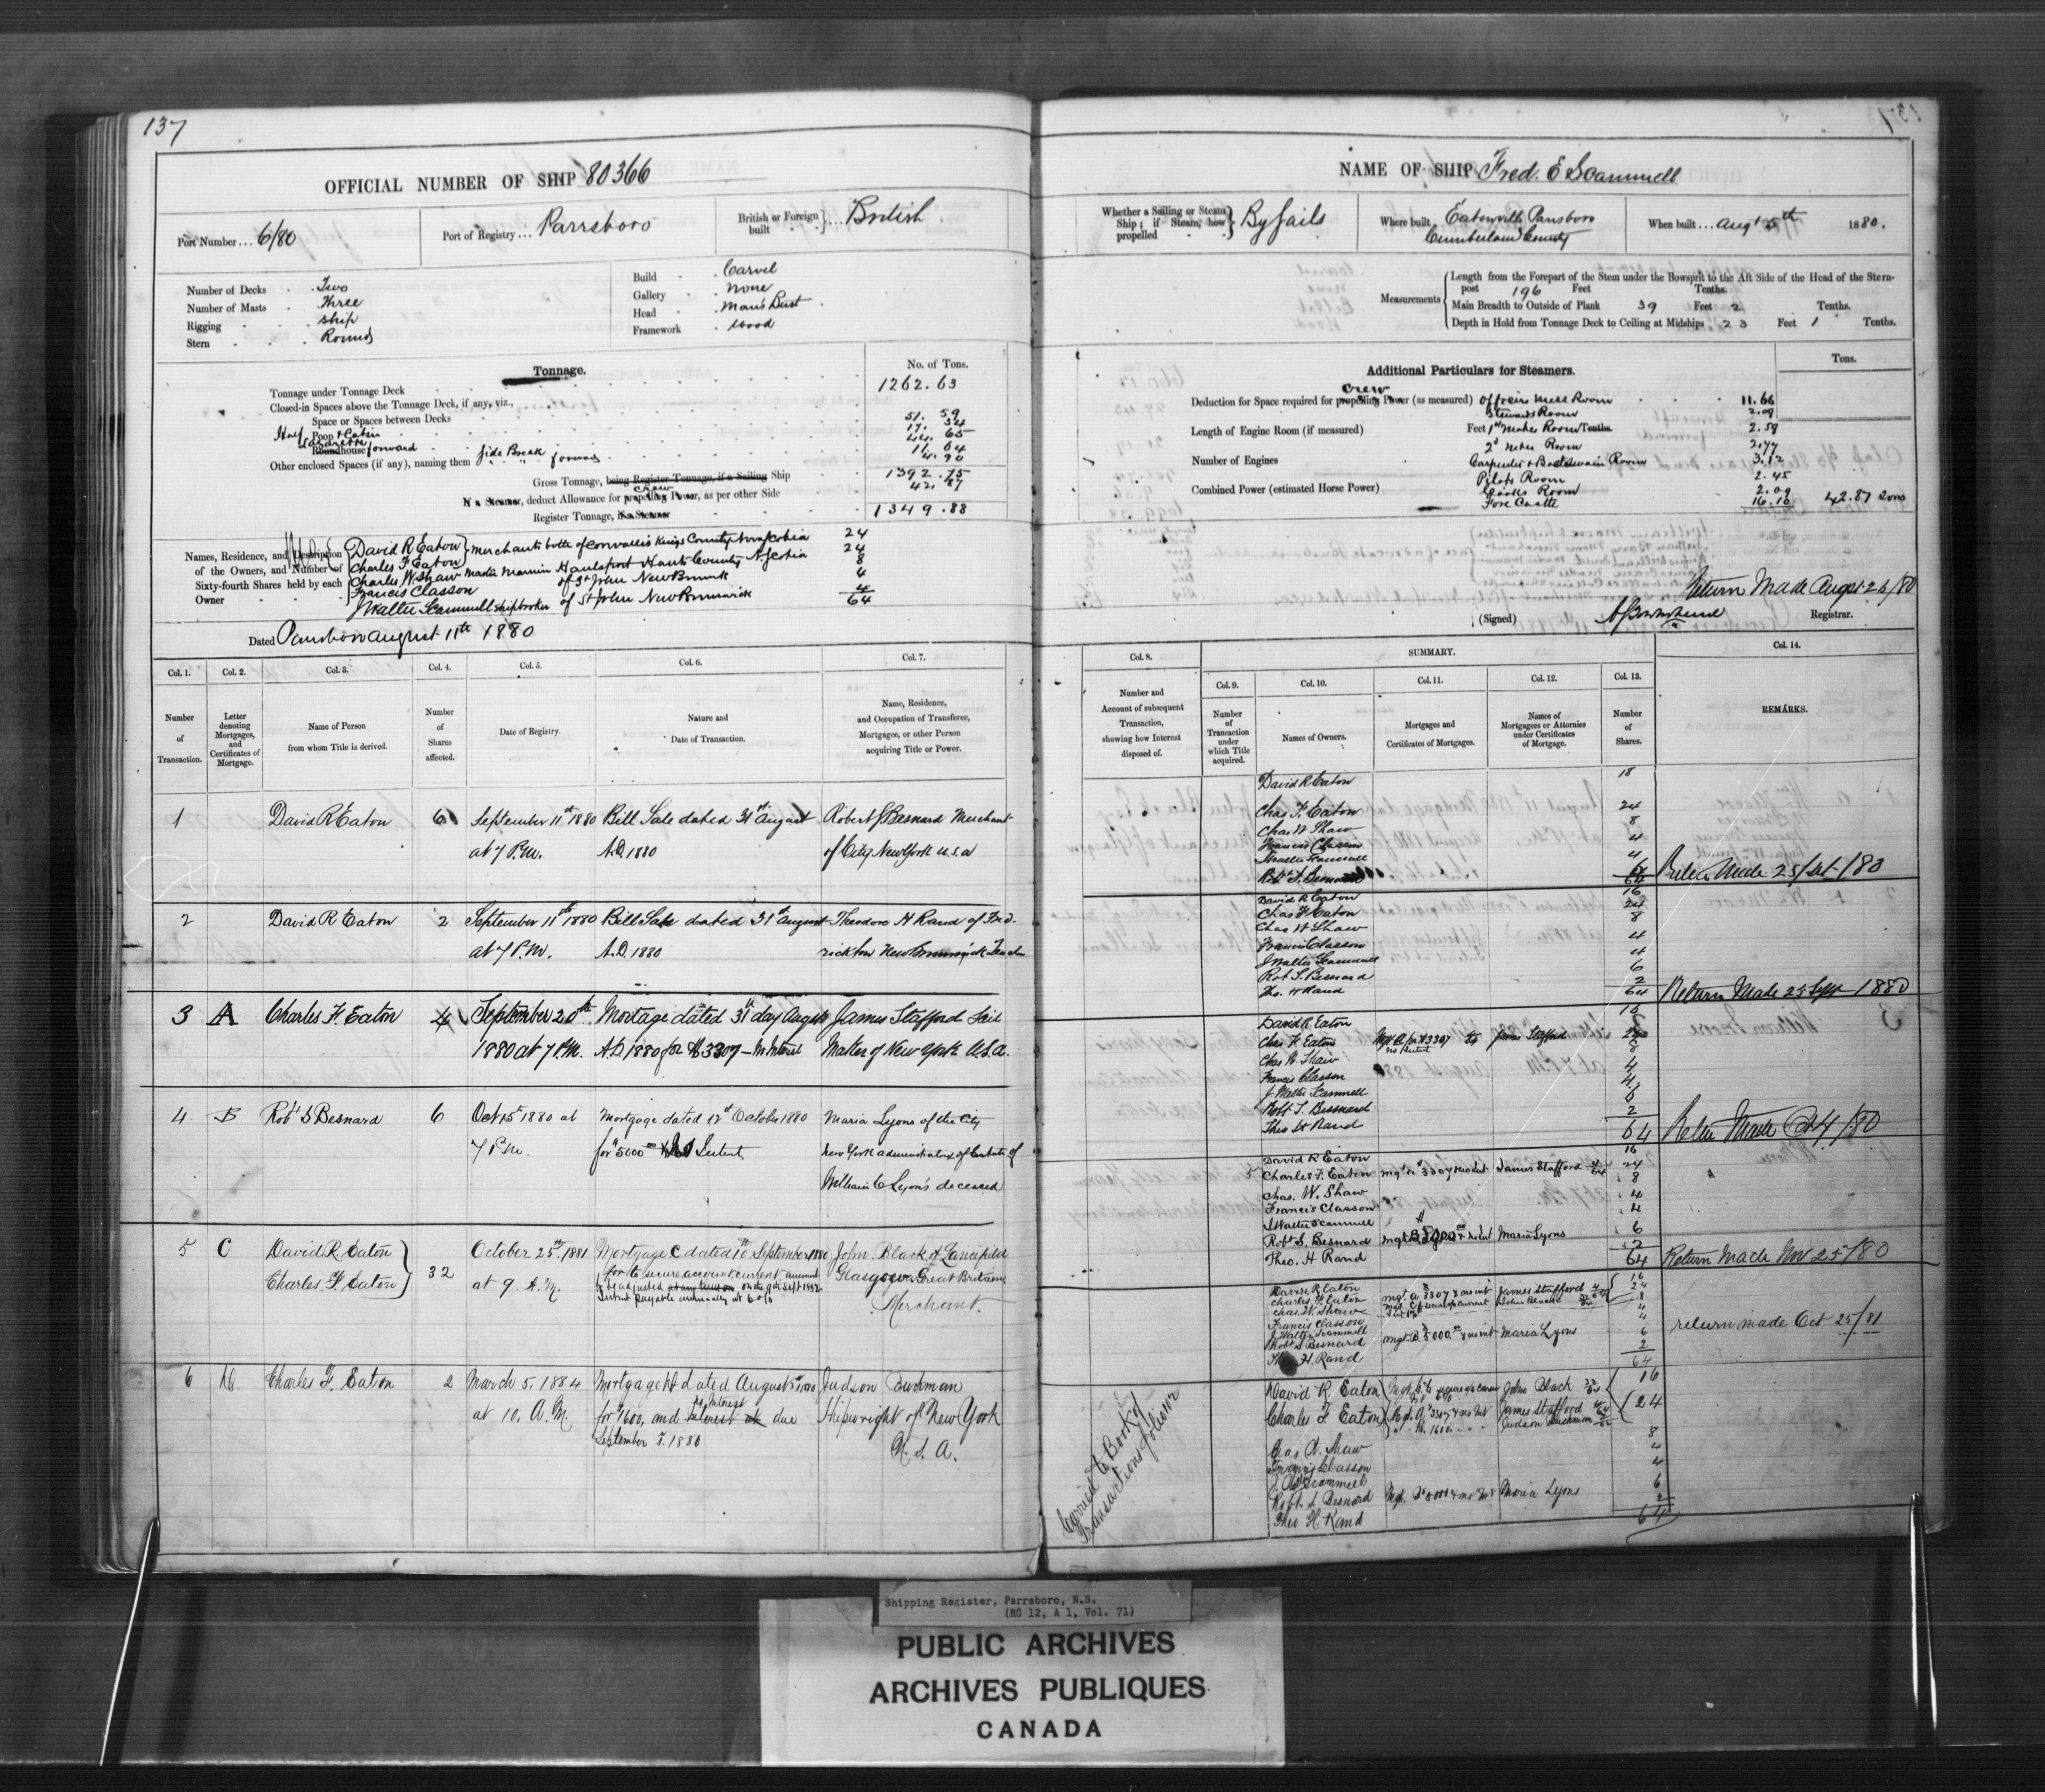 137
OFFICIAL NUMBER OF SHIP 80366
Port Number... 6/80
Port of Registry... Parrsboro
British or Foreign built British
Number of Decks Two
Number of Masts Three
Rigging Ship
Stern Round
Build Carvel
Gallery None
Head Man's Bust
Framework Wood
Tonnage. No. of Tons.
Tonnage under Tonnage Deck 1262.63
Closed-in Spaces above the Tonnage Deck, if any, viz.,
Space or Spaces between Decks
Half Poop & Cabin
Roundhouse forward
Other enclosed Spaces (if any), naming them Side Break forward
51.59
17.34
44.65
11.64
4.90
Gross Tonnage, being Register Tonnage, if a Sailing Ship 1392.75
If a Steamer, deduct Allowance for propelling Power, as per other Side 42.87
crew
Register Tonnage, if a Steamer 1349.88
Names, Residence, and Description of the Owners, and Number of Sixty-fourth Shares held by each Owner
David R Eaton 24
Charles F Eaton 24
Merchants both of Cornwallis Kings County Nova Scotia
Charles W Shaw Master Mariner Hantsport Hants County N Scotia 8
Francis Classon of St John New Brunswick 4
J Walter Scammell shipbroker of St John New Brunswick 4
64
Dated Parrsboro August 11th 1880
Col. 1. Col. 2. Col. 3. Col. 4. Col. 5. Col. 6. Col. 7.
Number of Transaction.
Letter denoting Mortgages, and Certificates of Mortgage.
Name of Person from whom Title is derived.
Number of Shares affected.
Date of Registry.
Nature and Date of Transaction.
Name, Residence, and Occupation of Transferee, Mortgagee, or other Person acquiring Title or Power.
1 David R Eaton 6 September 11th 1880 Bill Sale dated 31st August Robert S Besnard Merchant
at 7 P.M. A.D. 1880 of City New York U.S.A
2 David R Eaton 2 September 11th 1880 Bill Sale dated 31st August Theodore H Rand of Fred-
at 7 P.M. A.D. 1880 rickton New Brunswick Teacher
3 A Charles F. Eaton 4 September 20th Mortage dated 31st day August James Stafford Sail
1880 at 7 P.M. A.D. 1880 for $3307 - no Interest Maker of New York U.S.A.
4 B Robt S Besnard 6 Oct 15 1880 at Mortgage dated 12th October 1880 Maria Lyons of the City
7 P.M. for $5000 & no Interest New York administratrix of Estate of
William C Lyon's deceased
5 C David R. Eaton 32 October 25th 1881 Mortgage C dated 10th September 1880 John Black of Lancefield
Charles F Eaton at 9 A.M. for to secure account current amount Glasgow Great Britain
Merchant.
6 D. Charles F. Eaton 2 March 5. 1884 Mortgage D dated August 5 1880 Judson Buckman
at 10. A.M. for $1600, and no Interest due Shipwright of New York
September 5. 1880 U.S.A.
NAME OF SHIP Fred. E Scammell
Whether a Sailing or Steam Ship; if Steam, how propelled By Sails
Where built Eatonville Parrsboro
Cumberland County
When built... Augt 5th 1880.
Measurements
Length from the Forepart of the Stem under the Bowsprit to the Aft Side of the Head of the Stern-
post 196 Feet Tenths.
Main Breadth to Outside of Plank 39 Feet 2 Tenths.
Depth in Hold from Tonnage Deck to Ceiling at Midships 23 Feet 1 Tenths.
Additional Particulars for Steamers. Tons.
crew
Deduction for Space required for propelling Power (as measured) Officers Mess Room 11.66
Stewards Room 2.09
Length of Engine Room (if measured) Feet 1st Mates Room Tenths. 2.59
2d Mates Room 2.77
Number of Engines Carpenter & Boatswain Room 3.12
Pilots Room 2.45
Combined Power (estimated Horse Power) Cooks Room 2.09
Fore Castle 16.10 42.87 Tons
Return Made August 26/80
(Signed) Registrar.
Col. 8. SUMMARY. Col. 14.
Col. 9. Col. 10. Col. 11. Col. 12. Col. 13.
Number and Account of subsequent Transaction, showing how Interest disposed of.
Number of Transaction under which Title acquired.
Names of Owners.
Mortgages and Certificates of Mortgages.
Names of Mortgagees or Attornies under Certificates of Mortgage.
Number of Shares.
REMARKS.
David R Eaton 18
Chas F. Eaton 24
Chas W Shaw 8
Francis Classon 4
J Walter Scammell 4
Robt S. Besnard 6
64
Return Made 25/Sept/80
David R Eaton 16
Chas F Eaton 24
Chas W Shaw 8
Francis Classon 4
J Walter Scammell 4
Rob S. Besnard 6
Theo. H Rand 2
64
Return Made 25 Sept 1880
David R. Eaton 16
Chas F Eaton Mgt A for $3307 no Interest to James Stafford 24
Chas W. Shaw 8
Francis Classon 4
J Walter Scammell 4
Robt S. Besnard 6
Theo H Rand 2
64
Return Made Oct 4/80
David R Eaton 16
5 Charles F. Eaton mgt A $3307 no Int James Stafford 4/64 24
Chas. W. Shaw 8
Francis Classon 4
J Walter Scammell 4
Robt S. Besnard mgt B $5000 & no Int Maria Lyons 6
Theo. H Rand 2
64
Return Made Nov 25/80
David R Eaton 16
Charles F Eaton mgt. A $3307 & no int James Stafford 4/64 24
Chas. W. Shaw 8
Francis Classon 4
J Walter Scammell
Robt S Besnard mgt B $5000.00 & no int Maria Lyons 6
Theo H. Rand 2
64
return made Oct 25/81
David R. Eaton John Black 32/64 16
Charles F Eaton Mgt. A. $3307 & no Int James Stafford 4/64 24
" D. 1600 Judson Buckman 2/64
Chas W. Shaw 8
Francis Classon 4
J. Walter Scammell 4
Robt. S Besnard Mgt. B $5000 & no Int Maria Lyons 6
Theo H. Rand 2
64
Carried to Book of
Transactions folio
Shipping Register, Parrsboro, N.S.
(RG 12, A 1, Vol. 71)
PUBLIC ARCHIVES
ARCHIVES PUBLIQUES
CANADA